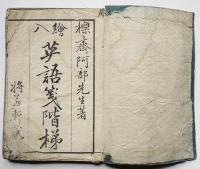 檪齋阿部先生著
繪入
英語箋階梯